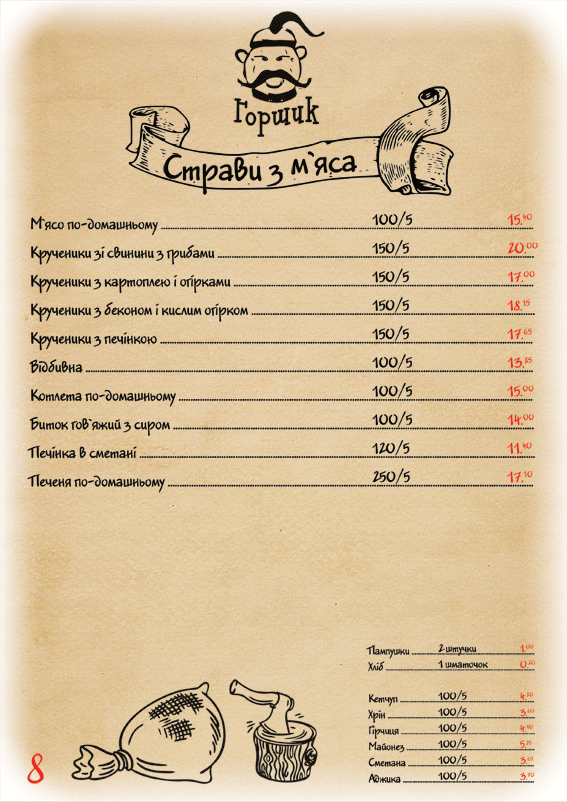 Горщик
Страви з м`яса
М`ясо по-домашньому 100/5 15.40
Крученики зі свинини з грибами 150/5 20.00
Крученики з картоплею і огірками 150/5 17.00
Крученики з беконом і кислим огірком 150/5 18.15
Крученики з печінкою 150/5 17.65
Відбивна 100/5 13.85
Котлета по-домашньому 100/5 15.00
Биток гов`яжий з сиром 100/5 14.00
Печінка в сметані 120/5 11.40
Печеня по-домашньому 250/5 17.10
Пампушки 2 штучки 1.00
Хліб 1 шматочок
Кетчуп 100/5
Хрін 100/5
Гірчиця 100/5
Майонез 100/5
Сметана 100/5
Аджика 100/5
8